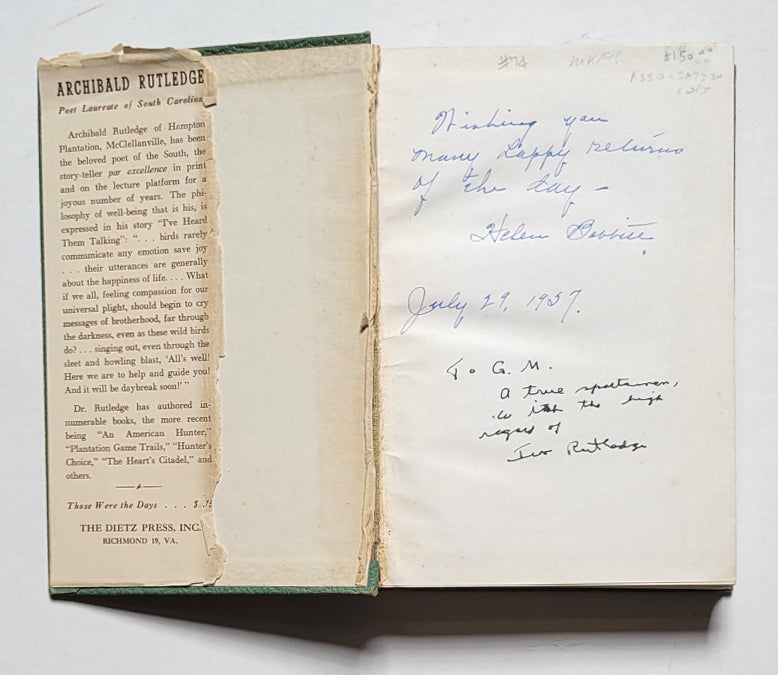 ARCHIBALD RUTLEDGE
Poet Laureate of South Carolina
Archibald Rutledge of Hampton
Plantation, McClellanville, has been
the beloved poet of the South, the
story-teller par excellence in print
and on the lecture platform for a
joyous number of years. The phi-
losophy of well-being that is his, is
expressed in his story "I've Heard
Them Talking": ". . . birds rarely
communicate any emotion save joy
. . . their utterances are generally
about the happiness of life. . . . What
if we all, feeling compassion for our
universal plight, should begin to cry
messages of brotherhood, far through
the darkness, even as these wild birds
do? . . . singing out, even through the
sleet and howling blast, 'All's well!
Here we are to help and guide you!
And it will be daybreak soon!' "
Dr. Rutledge has authored in-
numerable books, the more recent
being "An American Hunter,"
"Plantation Game Trails," "Hunter's
Choice," "The Heart's Citadel," and
others.
Those Were the Days . . . $
THE DIETZ PRESS, INC.
RICHMOND 19, VA.
$150.00
Wishing you
many happy returns
of the day –
Helen
July 29, 1957.
To G. M.
a true sportsman,
with the high
regard of
Rutledge